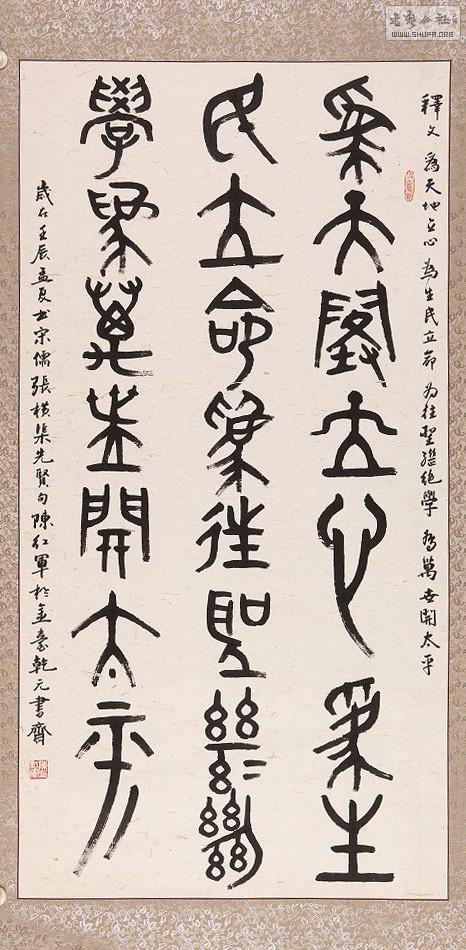 老年公社
WWW.SHUFA.ORG
釋文 為天地立心 為生民立命 為往聖繼絕學 為萬世開太平
為天地立心為生
民立命為往聖繼絕
學為萬世開太平
歲在壬辰孟夏書宋儒張橫渠先賢句陳紅軍於金臺乾元書齋